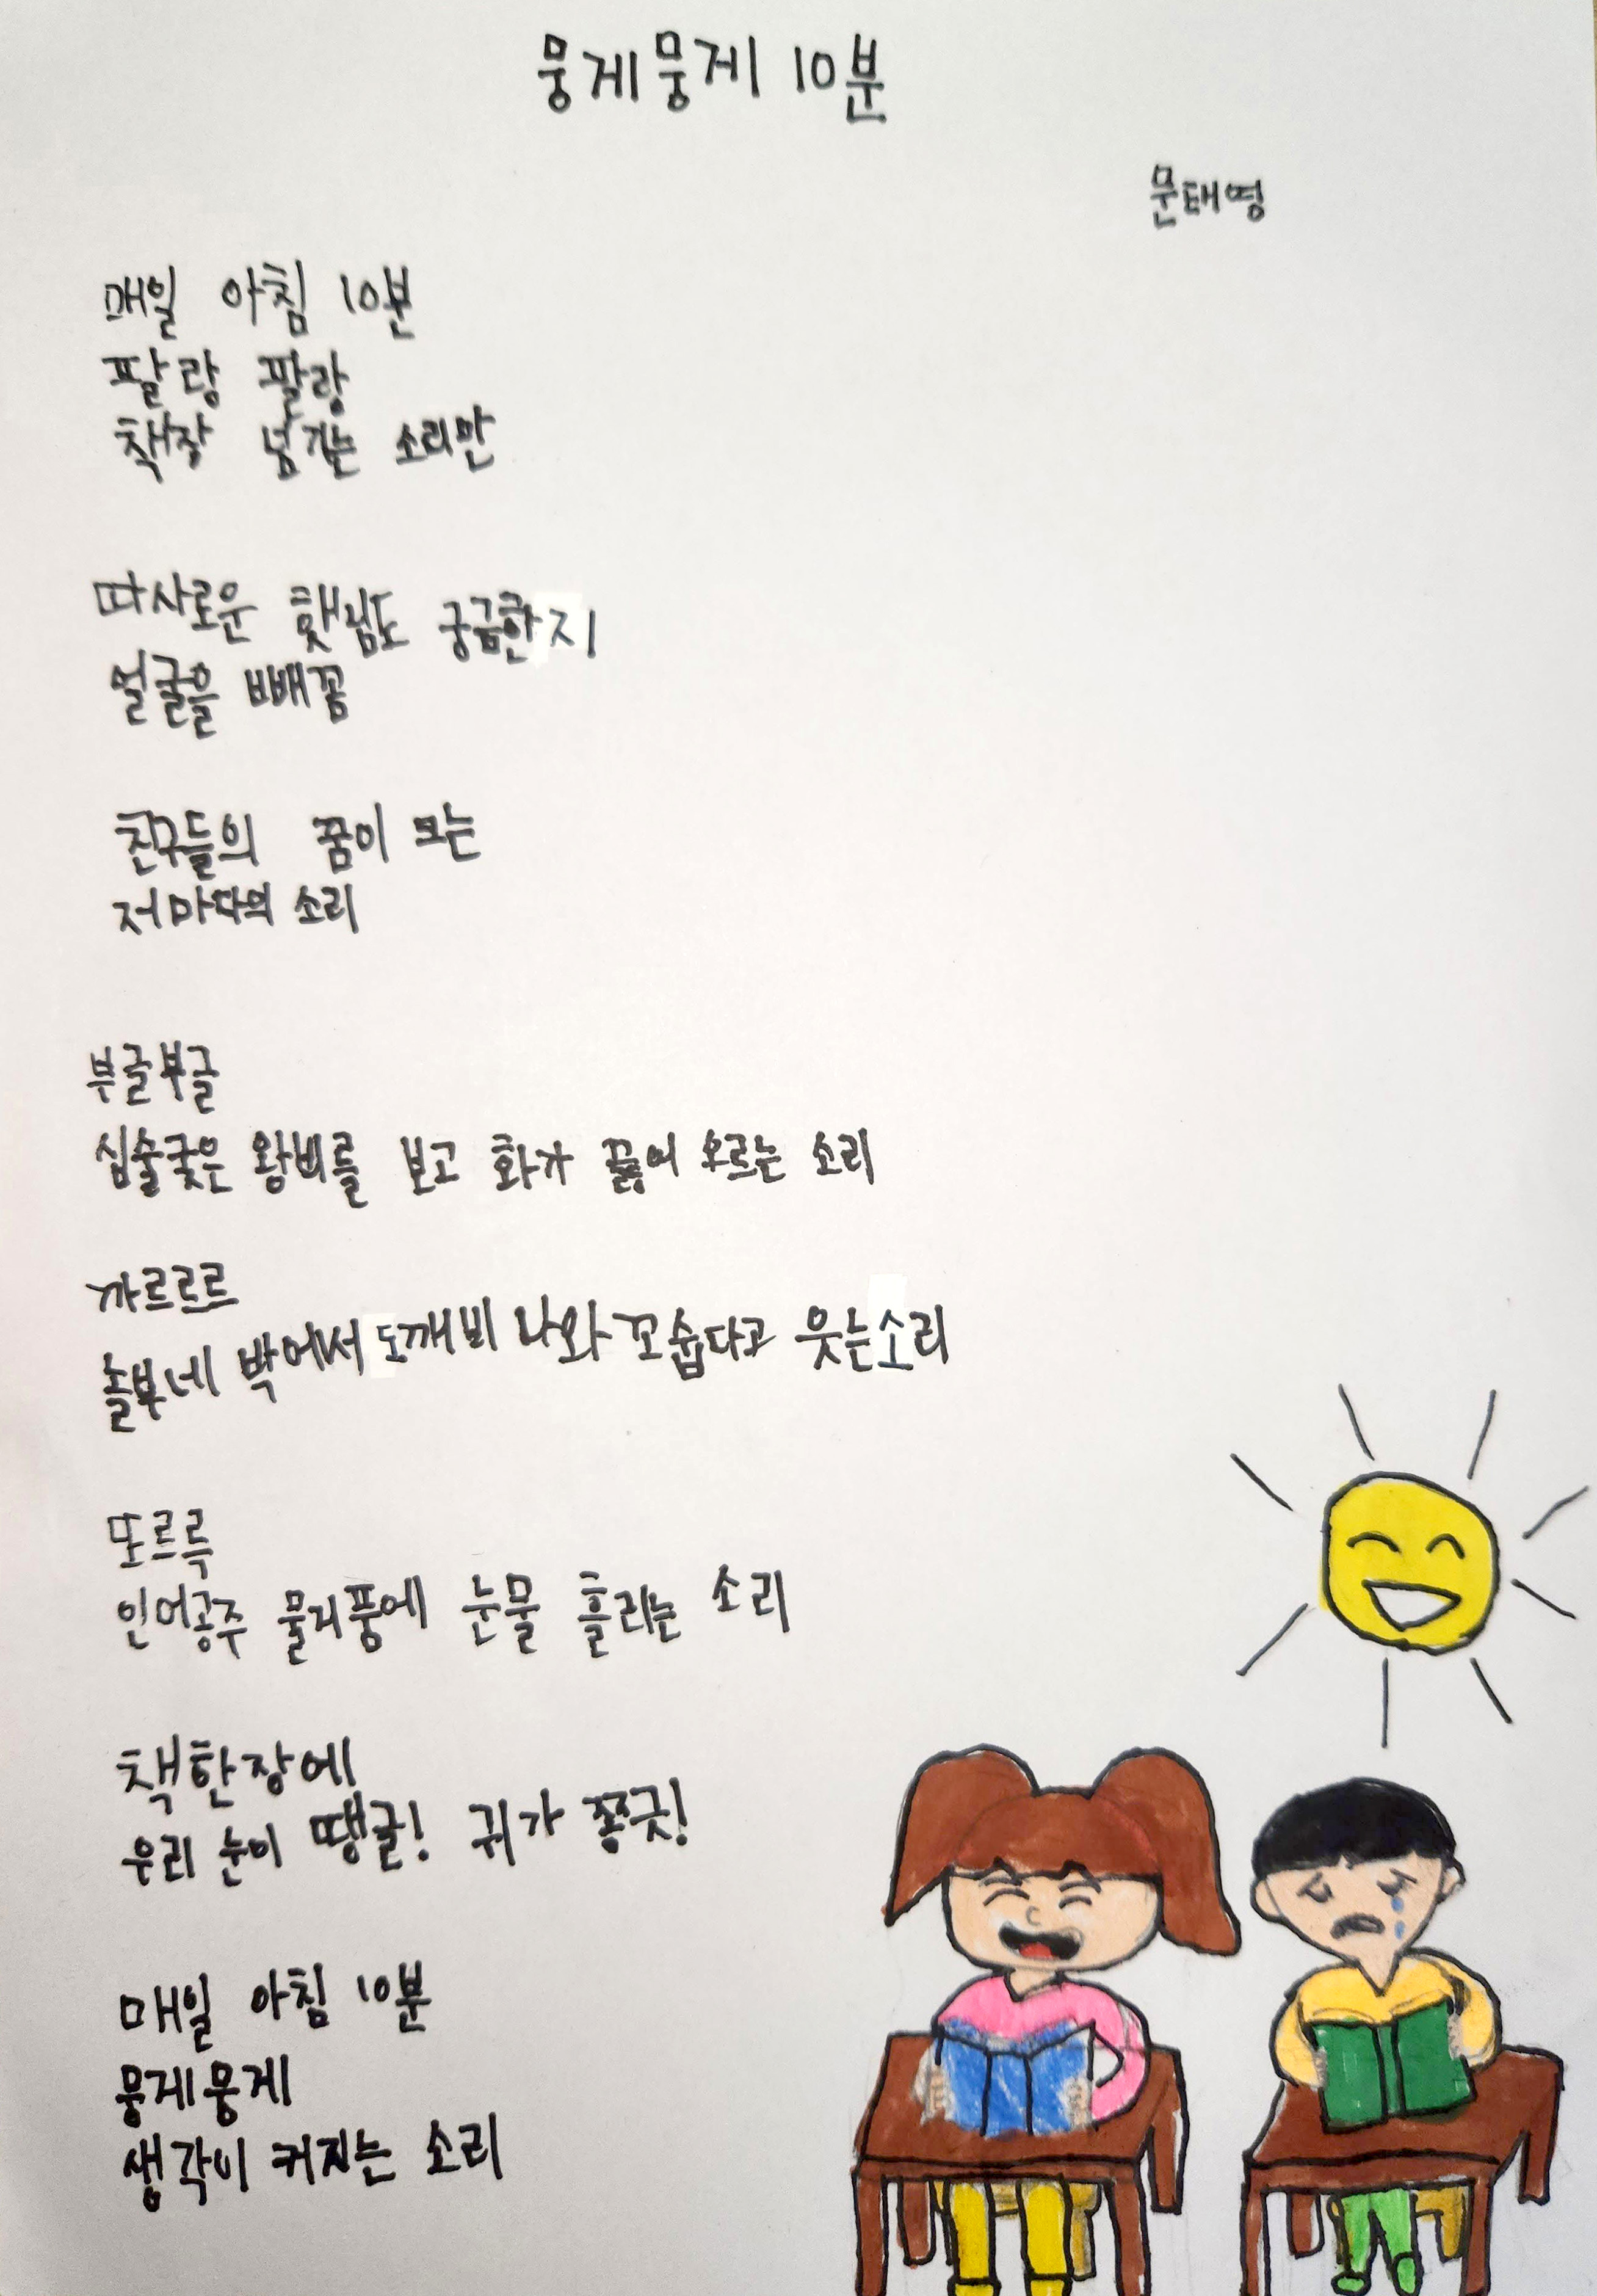 뭉게뭉게 10분
문태영
매일 아침 10분
팔랑 팔랑
책장 넘기는 소리만
따사로운 햇님도 궁금한지
얼굴을 빼꼼
친구들의 꿈이 크는
저마다의 소리
부글부글
심술궂은 왕비를 보고 화가 끓어 오르는 소리
까르르르
놀부네 박에서 도깨비 나와 꼬숩다고 웃는소리
또르륵
인어공주 물거품에 눈물 흘리는 소리
책한장에
우리 눈이 땡글! 귀가 쫑긋!
매일 아침 10분
뭉게뭉게
생각이 커지는 소리